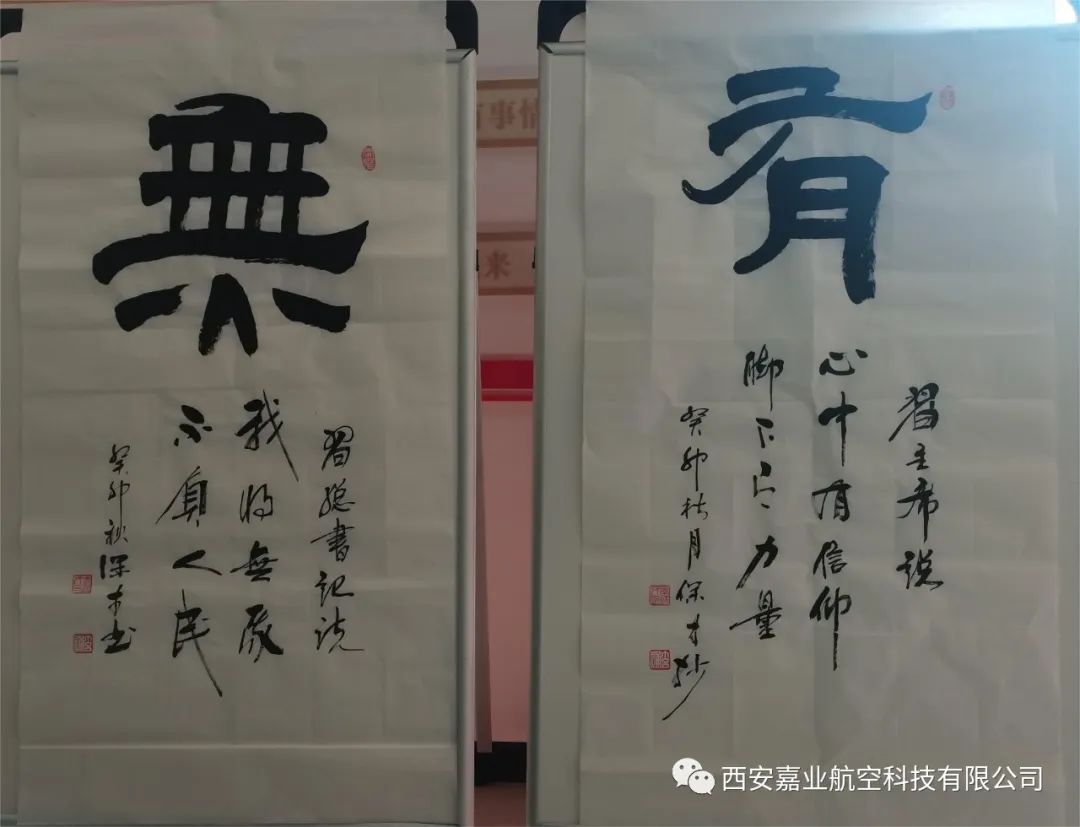 有
習主席说
心中有信仰
脚下有力量
癸卯秋月保才抄
無
習總書記说
我将無我
不負人民
癸卯秋保才书
事情
来
西安嘉业航空科技有限公司